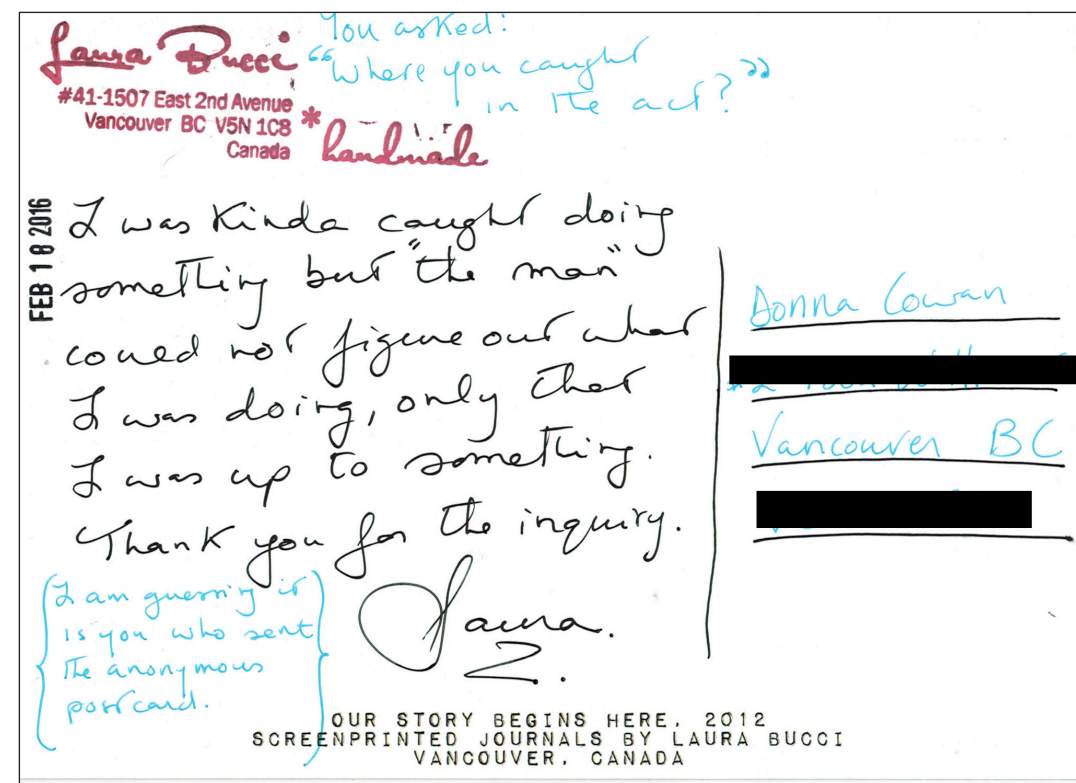 Laura Bucci
#41-1507 East 2nd Avenue
Vancouver BC V5N 1C8
Canada
* handmade
You asked:
"Where you caught
in the act?"
FEB 18 2016
I was kinda caught doing
something but "the man"
could not figure out what
I was doing, only that
I was up to something.
Thank you for the inquiry.
Laura.
{I am guessing it
is you who sent
the anonymous
postcard.}
Donna Cowan
Vancouver BC
OUR STORY BEGINS HERE, 2012
SCREENPRINTED JOURNALS BY LAURA BUCCI
VANCOUVER, CANADA